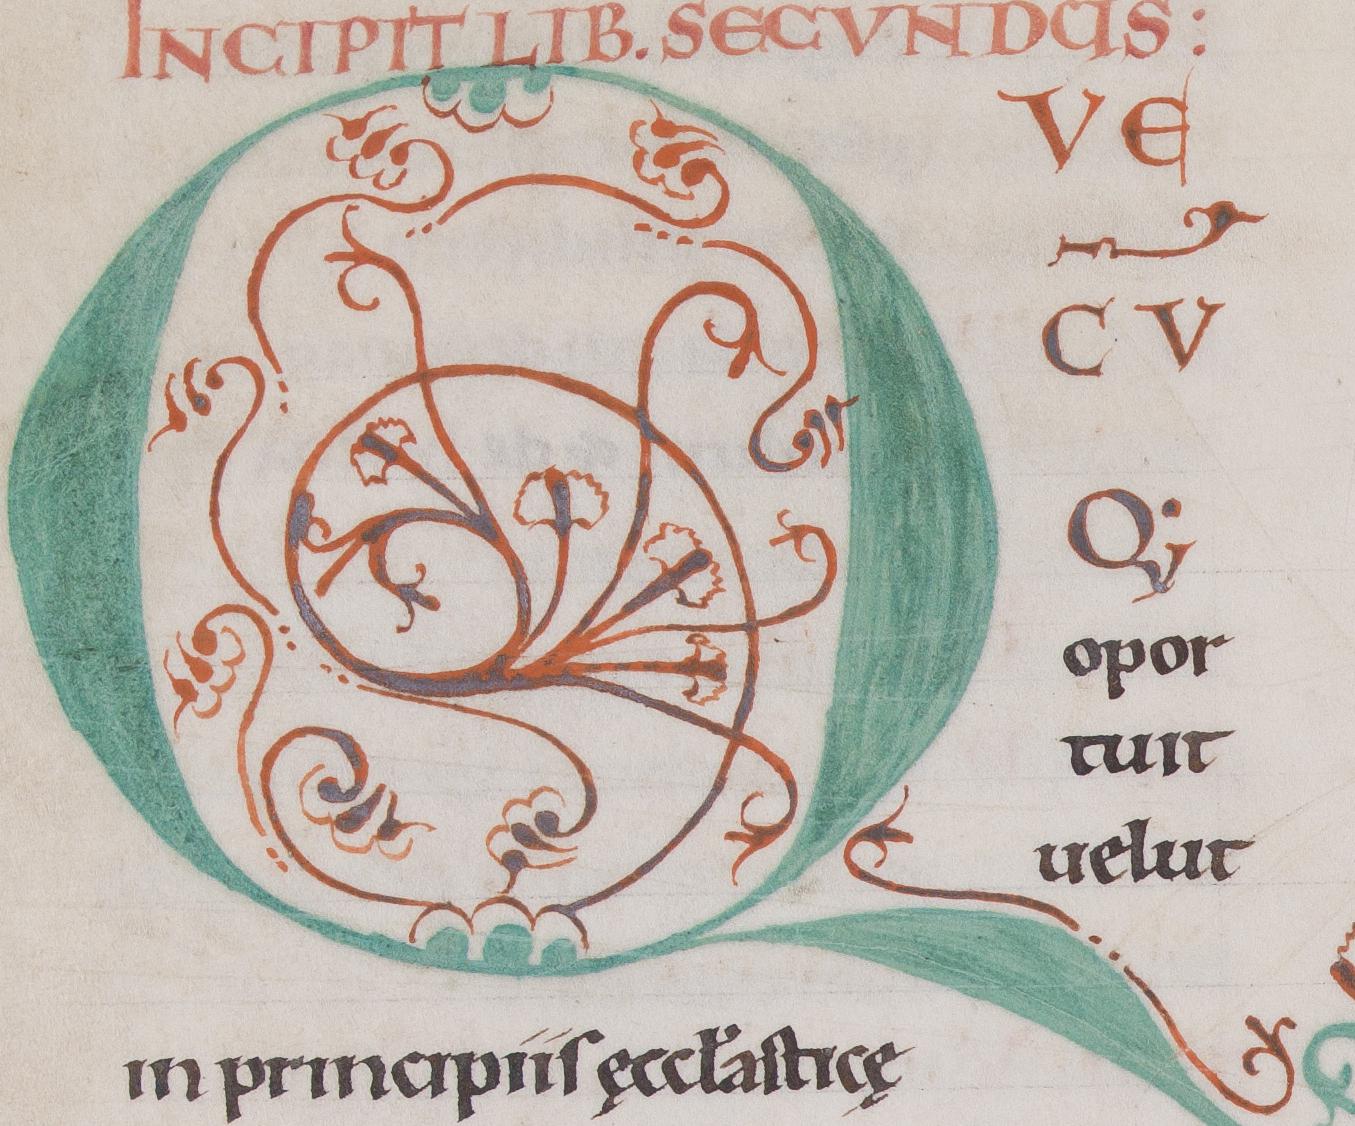 INCIPIT LIB. SECVNDUS:
QVE
CV̄
Q;
opor
tuit
uelut
in principiiſ ęccl'aſticę